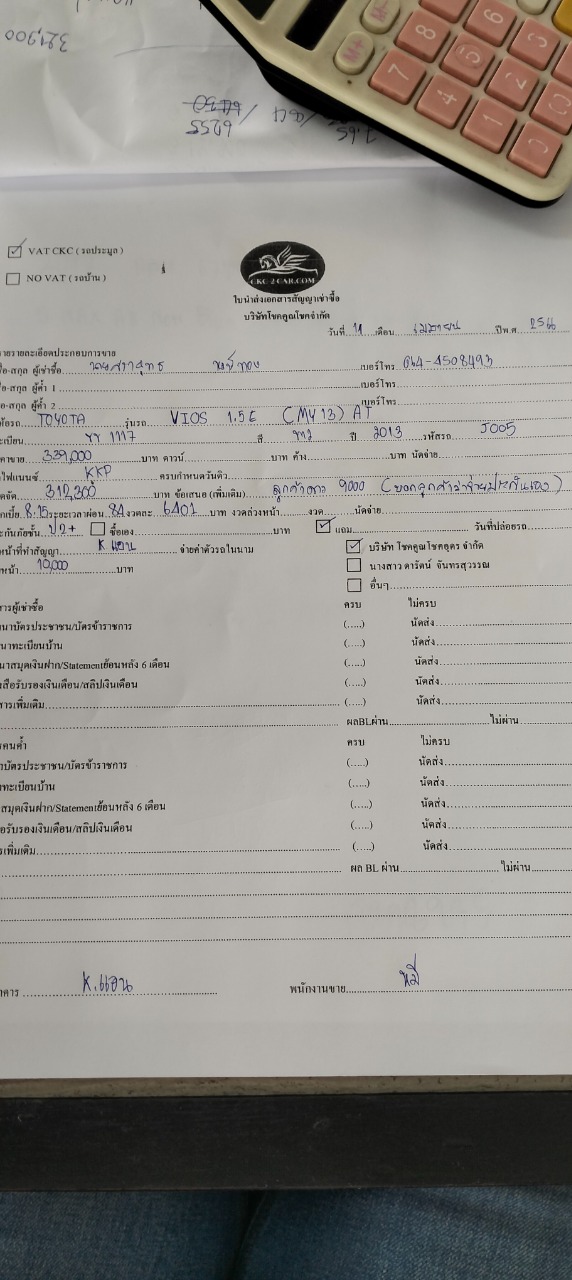 VAT CKC ( รถประมูล )
NO VAT ( รถบ้าน )
CKC 2 CAR.COM
ใบนำส่งเอกสารสัญญาเช่าซื้อ
บริษัทโชคคูณโชคจำกัด
วันที่ 11 เดือน เมษายน ปีพ.ศ. 2566
รายละเอียดประกอบการขาย
อ-สกุล ผู้เช่าซื้อ เบอร์โทร 064-4508493
อ-สกุล ผู้ค้ำ 1 เบอร์โทร
อ-สกุล ผู้ค้ำ 2 เบอร์โทร
TOYOTA รุ่นรถ VIOS 1.5 E (MY 13) AT
ะเบียน 1117 สี ปี 2013 รหัสรถ J005
คาขาย 339,000 บาท ดาวน์ บาท ค้าง บาท นัดจ่าย
ไฟแนนซ์ KKP ครบกำหนดวันดิว
ดจัด 312,300 บาท ข้อเสนอ (เพิ่มเติม) ลูกค้าดาว 9000
8.15 ระยะเวลาผ่อน 84 งวดละ 6401 บาท งวดล่วงหน้า งวด นัดจ่าย
ะกันภัยชั้น ป2+ ซื้อเอง บาท แถม วันที่ปล่อยรถ
หน้าที่ทำสัญญา K แอน จ่ายค่าตัวรถในนาม บริษัท โชคคูณโชคอุดร จำกัด
หน้า 10,000 บาท นางสาว ดารัตน์ จันทรสุวรรณ
อื่นๆ
สารผู้เช่าซื้อ ครบ ไม่ครบ
นาบัตรประชาชน/บัตรข้าราชการ (.....) นัดส่ง
นาทะเบียนบ้าน (.....) นัดส่ง
นาสมุดเงินฝาก/Statementย้อนหลัง 6 เดือน (.....) นัดส่ง
สือรับรองเงินเดือน/สลิปเงินเดือน (.....) นัดส่ง
สารเพิ่มเติม (.....) นัดส่ง
ผลBLผ่าน ไม่ผ่าน
รคนค้ำ ครบ ไม่ครบ
าบัตรประชาชน/บัตรข้าราชการ (.....) นัดส่ง
าทะเบียนบ้าน (.....) นัดส่ง
สมุดเงินฝาก/Statementย้อนหลัง 6 เดือน (.....) นัดส่ง
อรับรองเงินเดือน/สลิปเงินเดือน (.....) นัดส่ง
รเพิ่มเติม (.....) นัดส่ง
ผล BL ผ่าน ไม่ผ่าน
าคาร K.แอน พนักงานขาย หมี